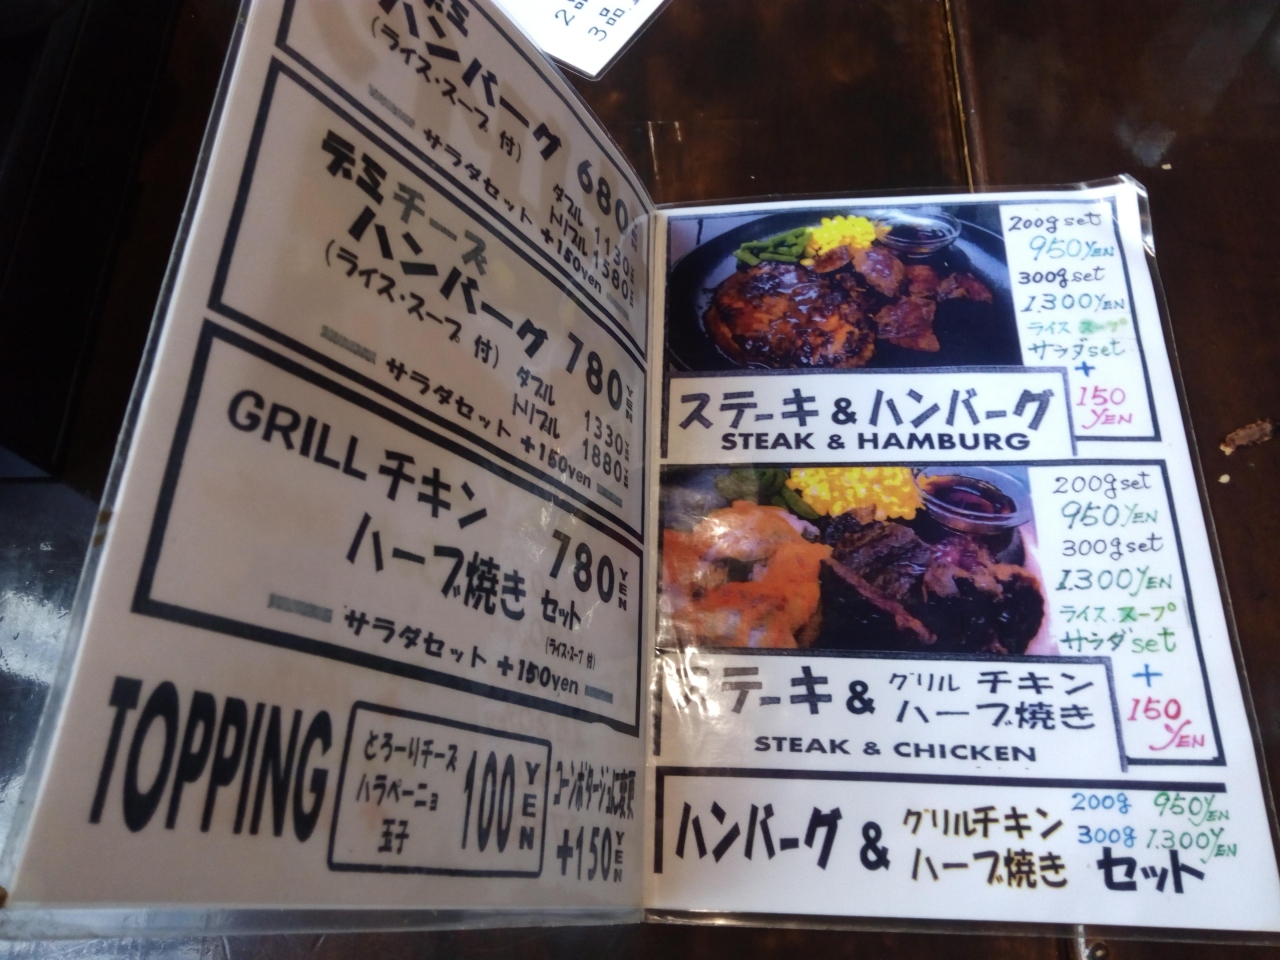 デミ
ハンバーグ 680
(ライス・スープ 付)
ダブル 1130
トリプル 1580
サラダセット +150yen
デミチーズ
ハンバーグ 780YEN
(ライス・スープ 付)
ダブル 1330
トリプル 1880
サラダセット +150yen
GRILLチキン
ハーブ焼き 780YEN
セット
(ライス・スープ 付)
サラダセット +150yen
TOPPING
とろーりチーズ
ハラペーニョ
玉子
100YEN
コーンポタージュに変更
+150YEN
200g set
950YEN
300g set
1.300YEN
ライス スープ
サラダset
+
150
YEN
ステーキ&ハンバーグ
STEAK & HAMBURG
200g set
950YEN
300g set
1.300YEN
ライス.スープ
サラダset
+
150
YEN
ステーキ & グリル チキン
ハーブ焼き
STEAK & CHICKEN
ハンバーグ & グリルチキン
ハーブ焼き セット
200g 950YEN
300g 1.300YEN